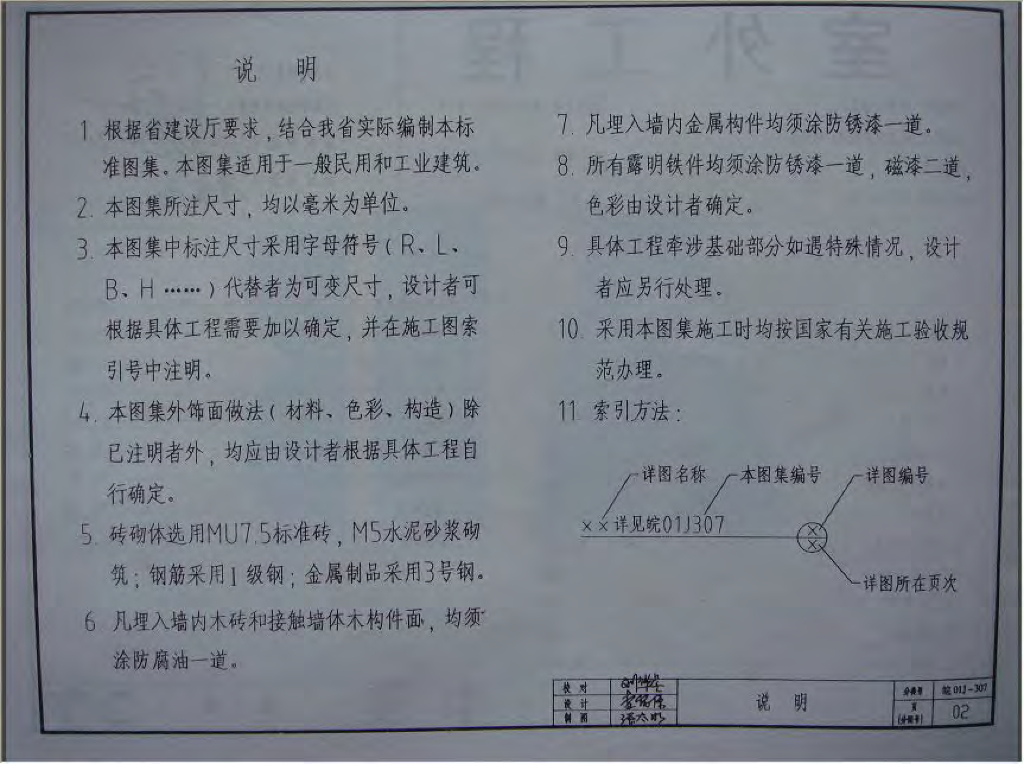 说 明
1. 根据省建设厅要求，结合我省实际编制本标
准图集。本图集适用于一般民用和工业建筑。
2. 本图集所注尺寸，均以毫米为单位。
3. 本图集中标注尺寸采用字母符号（R、L、
B、H ……）代替者为可变尺寸，设计者可
根据具体工程需要加以确定，并在施工图索
引号中注明。
4. 本图集外饰面做法（材料、色彩、构造）除
已注明者外，均应由设计者根据具体工程自
行确定。
5. 砖砌体选用MU7.5标准砖，M5水泥砂浆砌
筑；钢筋采用I级钢；金属制品采用3号钢。
6 凡埋入墙内木砖和接触墙体木构件面，均须
涂防腐油一道。
7. 凡埋入墙内金属构件均须涂防锈漆一道。
8. 所有露明铁件均须涂防锈漆一道，磁漆二道，
色彩由设计者确定。
9. 具体工程牵涉基础部分如遇特殊情况，设计
者应另行处理。
10. 采用本图集施工时均按国家有关施工验收规
范办理。
11. 索引方法：
详图名称 本图集编号 详图编号
××详见皖01J307
详图所在页次
校 对
设 计
制 图
说 明
分类号 皖01J-307
页
(分图号)
02
室外工程